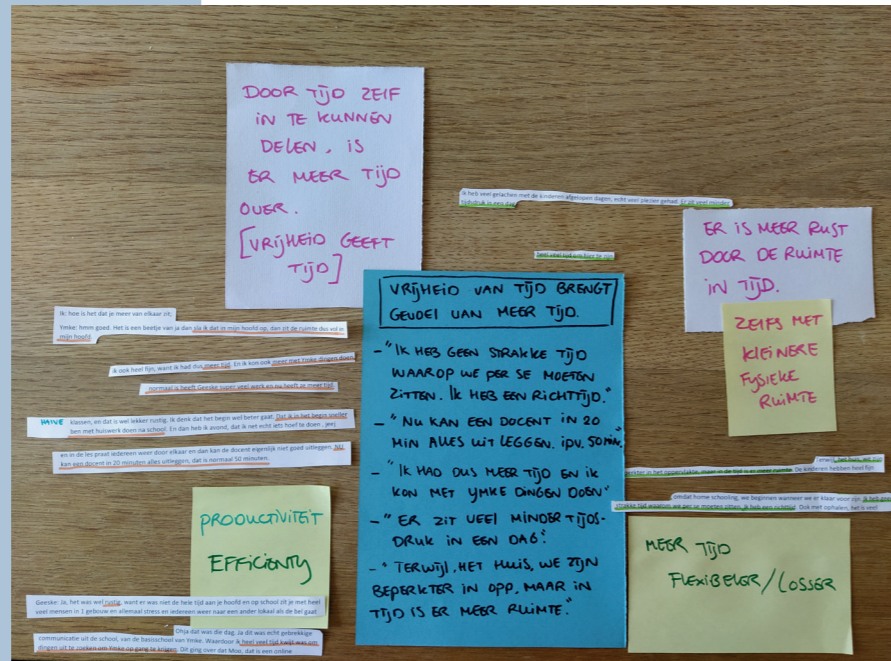 DOOR TIJD ZELF
IN TE KUNNEN
DELEN, IS
ER MEER TIJD
OVER.
[VRIJHEID GEEFT
TIJD]
Ik heb veel gelachen met de kinderen afgelopen dagen, echt veel plezier gehad. Er zit veel minder
tijdsdruk in een dag
heel veel tijd om hier te zijn
ER IS MEER RUST
DOOR DE RUIMTE
IN TIJD.
ZELFS MET
KLEINERE
FYSIEKE
RUIMTE
VRIJHEID VAN TIJD BRENGT
GEVOEL VAN MEER TIJD.
- "IK HEB GEEN STRAKKE TIJD
WAAROP WE PER SE MOETEN
ZITTEN. IK HEB EEN RICHTTIJD."
- "NU KAN EEN DOCENT IN 20
MIN ALLES UIT LEGGEN. IPV. 50 MIN."
- "IK HAD DUS MEER TIJD EN IK
KON MET YMKE DINGEN DOEN"
- "ER ZIT VEEL MINDER TIJDS-
DRUK IN EEN DAG."
- "TERWIJL, HET HUIS, WE ZIJN
BEPERKTER IN OPP, MAAR IN
TIJD IS ER MEER RUIMTE."
Ik: hoe is het dat je meer van elkaar zit,
Ymke: hmm goed. Het is een beetje van ja dan sla ik dat in mijn hoofd op, dan zit de ruimte dus
mijn hoofd
ik ook heel fijn, want ik had dus meer tijd. En ik kon ook meer met Ymke dingen doen,
normaal is heeft Geeske super veel werk en nu heeft ze meer tijd.
klassen, en dat is wel lekker rustig. Ik denk dat het begin wel beter gaat. Dat ik in het begin sneller
ben met huiswerk doen na school. En dan heb ik avond, dat ik net echt iets hoef te doen, jeej
en in de les praat iedereen weer door elkaar en dan kan de docent eigenlijk niet goed uitleggen. Nu
kan een docent in 20 minuten alles uitleggen, dat is normaal 50 minuten.
Terwijl, het huis, we zijn
beperkter in het oppervlakte, maar in de tijd is er meer ruimte. De kinderen hebben heel fijn
omdat home schooling, we beginnen wanneer we er klaar voor zijn. Ik heb geen
strakke tijd waarom we per se moeten zitten, ik heb een richttijd. Ook met ophalen, het is veel
PRODUCTIVITEIT
EFFICIENTY
MEER TIJD
FLEXIBELER/LOSSER
Geeske: Ja, het was wel rustig, want er was niet de hele tijd aan je hoofd en op school zit je met heel
veel mensen in 1 gebouw en allemaal stress en iedereen weer naar een ander lokaal als de bel gaat
Ohja dat was die dag. Ja dit was echt gebrekkige
communicatie uit de school, van de basisschool van Ymke. Waardoor ik heel veel tijd kwijt was om
dingen uit te zoeken om Ymke op gang te krijgen. Dit ging over dat Moo, dat is een online